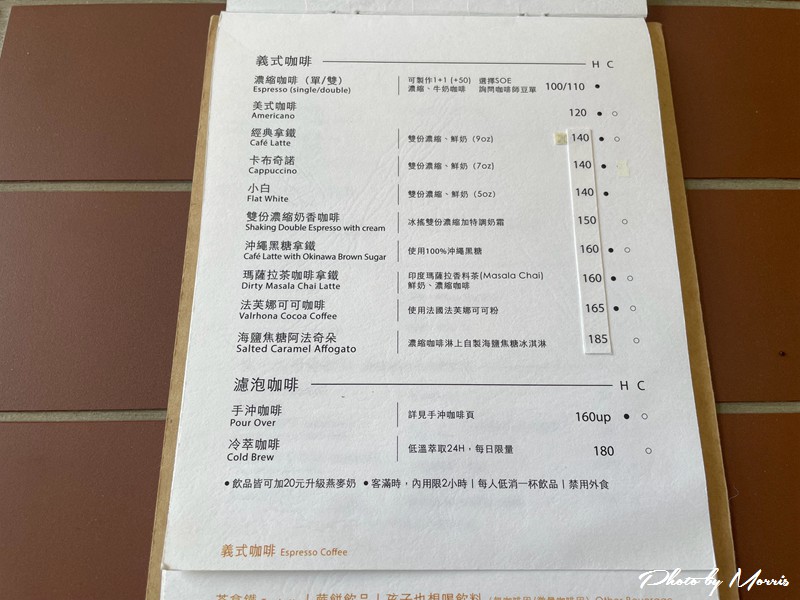 義式咖啡 H C
濃縮咖啡（單/雙） 可製作1+1 (+50) 選擇SOE
Espresso (single/double) 濃縮、牛奶咖啡 詢問咖啡師豆單 100/110 ●
美式咖啡
Americano 120 ● ○
經典拿鐵
Café Latte 雙份濃縮、鮮奶（9oz） 140 ● ○
卡布奇諾
Cappuccino 雙份濃縮、鮮奶（7oz） 140 ●
小白
Flat White 雙份濃縮、鮮奶（5oz） 140 ●
雙份濃縮奶香咖啡
Shaking Double Espresso with cream 冰搖雙份濃縮加特調奶霜 150 ○
沖繩黑糖拿鐵
Café Latte with Okinawa Brown Sugar 使用100%沖繩黑糖 160 ● ○
瑪薩拉茶咖啡拿鐵 印度瑪薩拉香料茶(Masala Chai)
Dirty Masala Chai Latte 鮮奶、濃縮咖啡 160 ● ○
法芙娜可可咖啡
Valrhona Cocoa Coffee 使用法國法芙娜可可粉 165 ● ○
海鹽焦糖阿法奇朵
Salted Caramel Affogato 濃縮咖啡淋上自製海鹽焦糖冰淇淋 185 ○
濾泡咖啡 H C
手沖咖啡
Pour Over 詳見手沖咖啡頁 160up ● ○
冷萃咖啡
Cold Brew 低溫萃取24H，每日限量 180 ○
●飲品皆可加20元升級燕麥奶 ●客滿時，內用限2小時｜每人低消一杯飲品｜禁用外食
義式咖啡 Espresso Coffee
Other Beverages
Photo by Morris